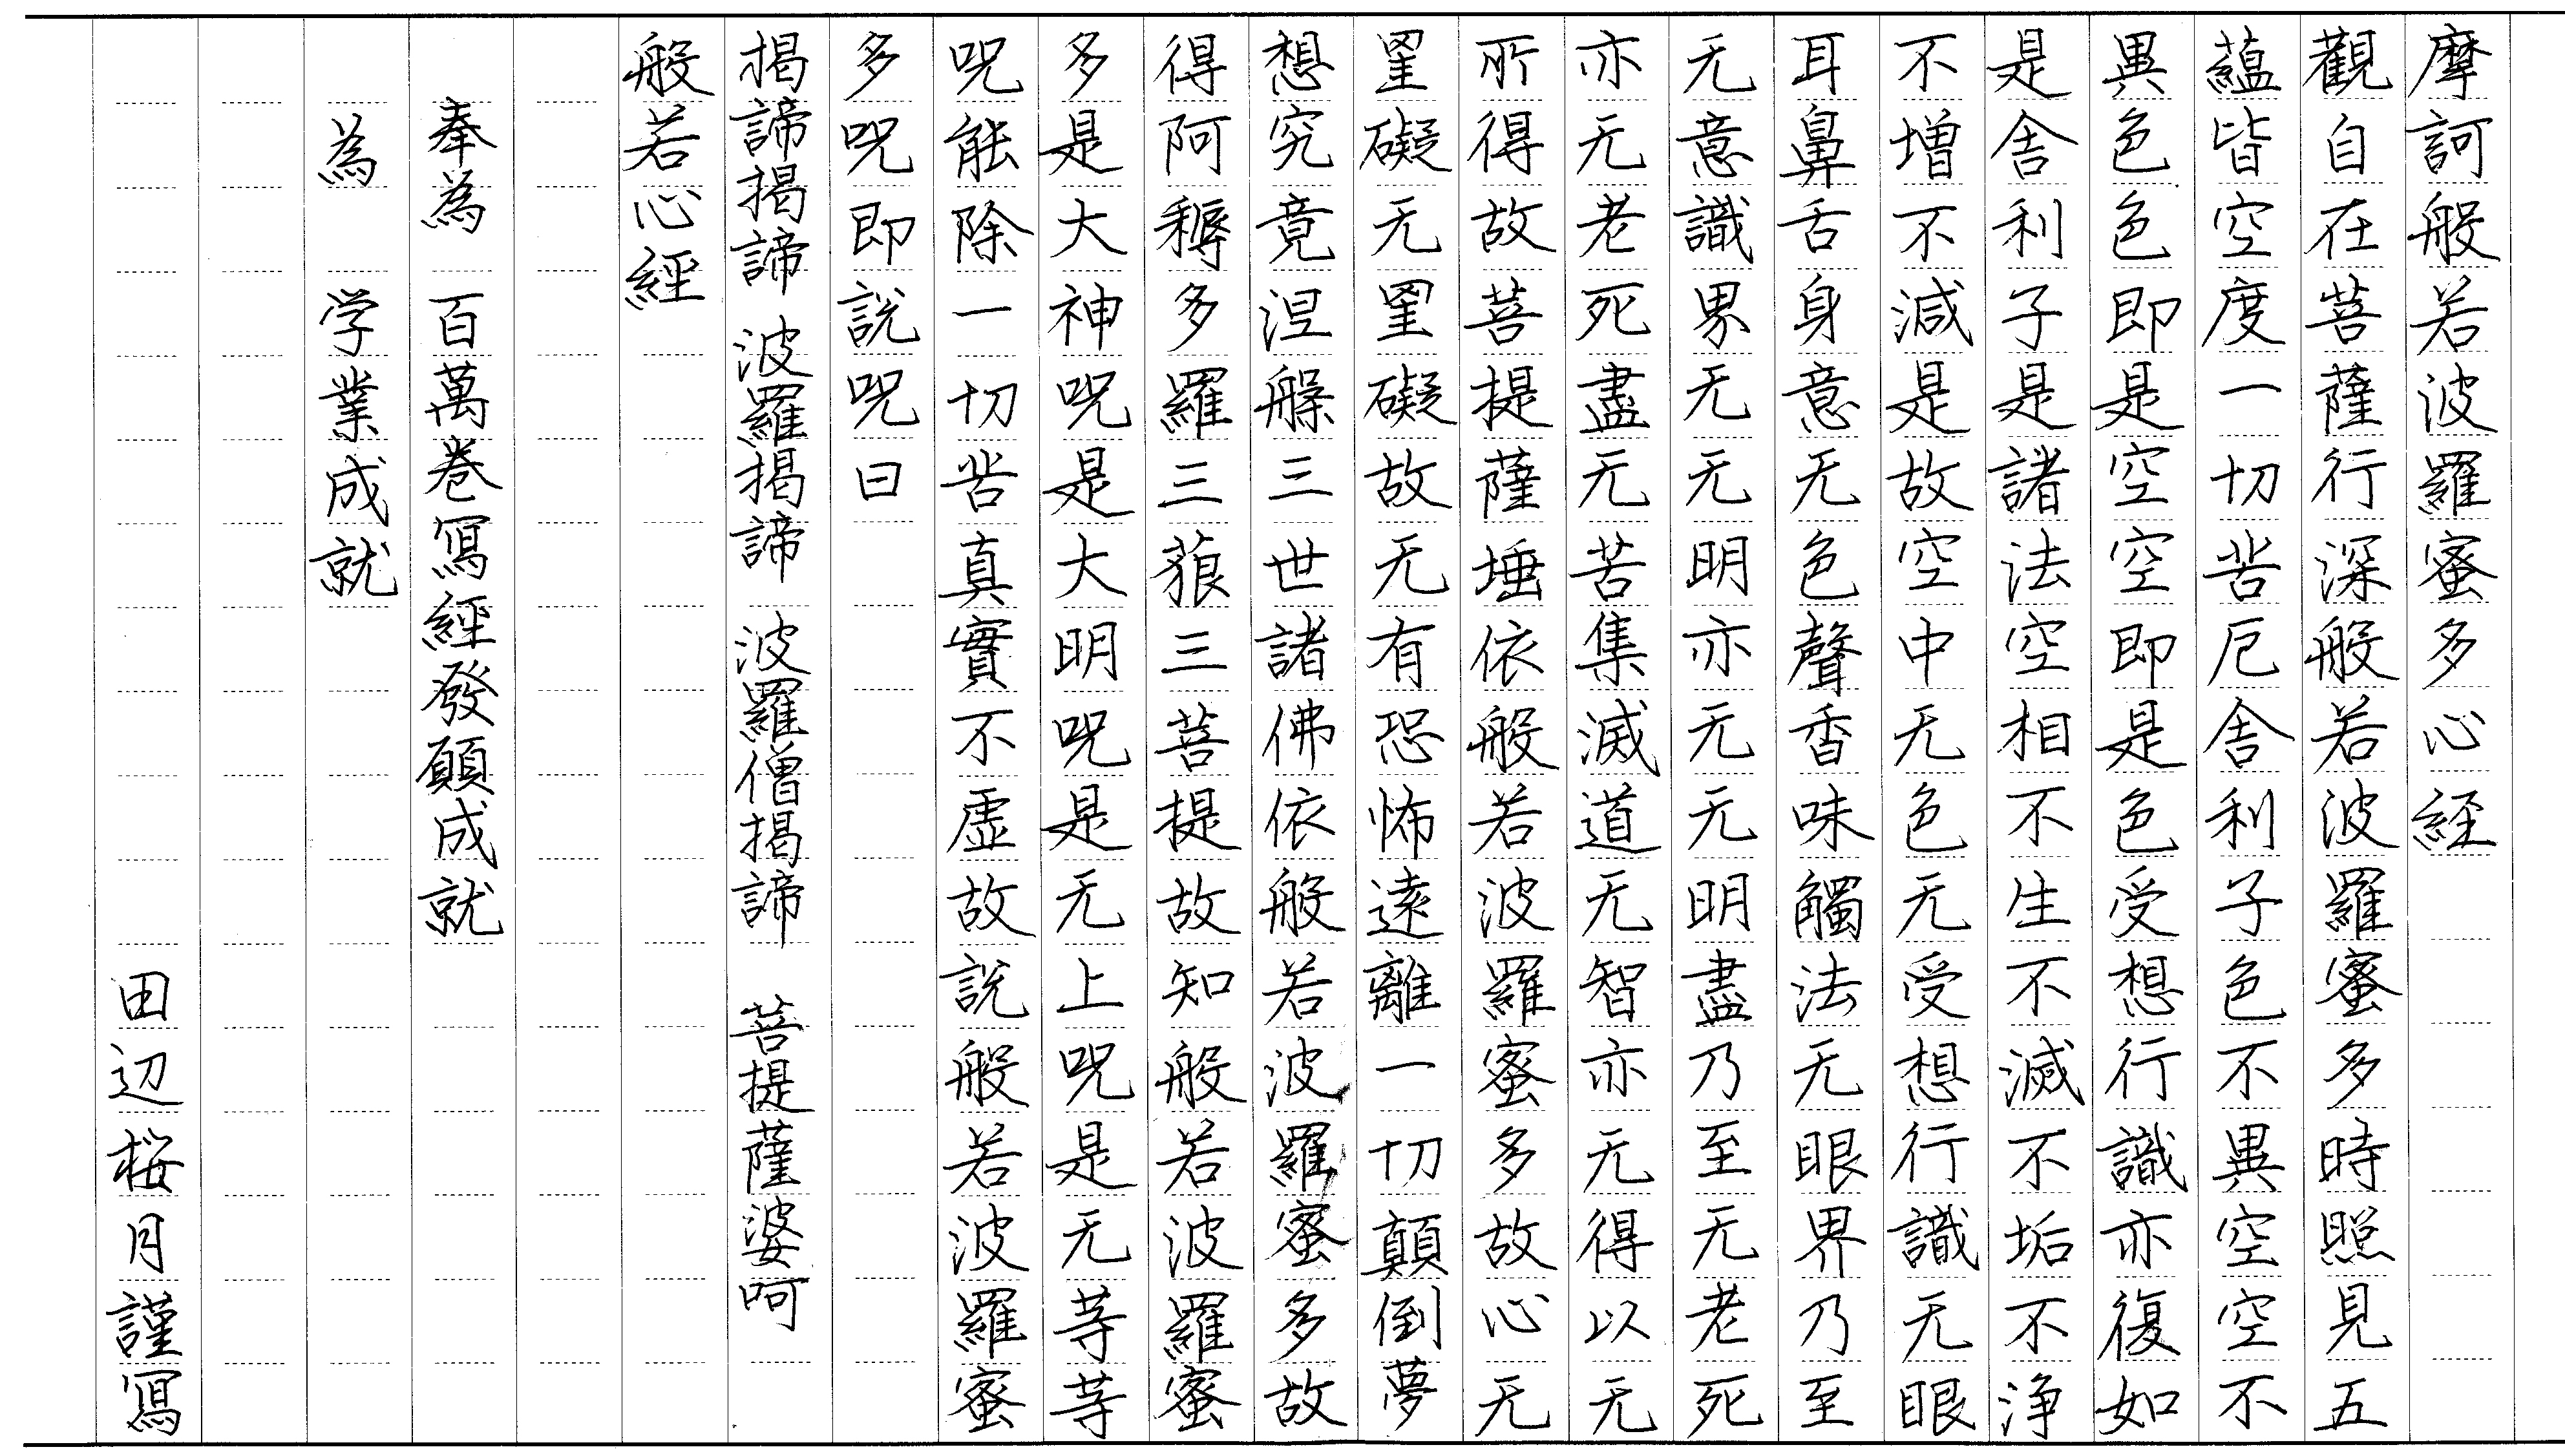 摩訶般若波羅蜜多心経
觀自在菩薩行深般若波羅蜜多時照見五
蘊皆空度一切苦厄舎利子色不異空空不
異色色即是空空即是色受想行識亦復如
是舎利子是諸法空相不生不滅不垢不浄
不増不減是故空中无色无受想行識无眼
耳鼻舌身意无色聲香味觸法无眼界乃至
无意識界无无明亦无无明盡乃至无老死
亦无老死盡无苦集滅道无智亦无得以无
所得故菩提薩埵依般若波羅蜜多故心无
罣礙无罣礙故无有恐怖遠離一切顛倒夢
想究竟涅槃三世諸佛依般若波羅蜜多故
得阿耨多羅三藐三菩提故知般若波羅蜜
多是大神呪是大明呪是无上呪是无等等
呪能除一切苦真實不虚故説般若波羅蜜
多呪即説呪曰
揭諦揭諦 波羅揭諦 波羅僧揭諦 菩提薩婆呵
般若心経
奉為 百萬巻寫経發願成就
為 学業成就
田辺桜月謹寫